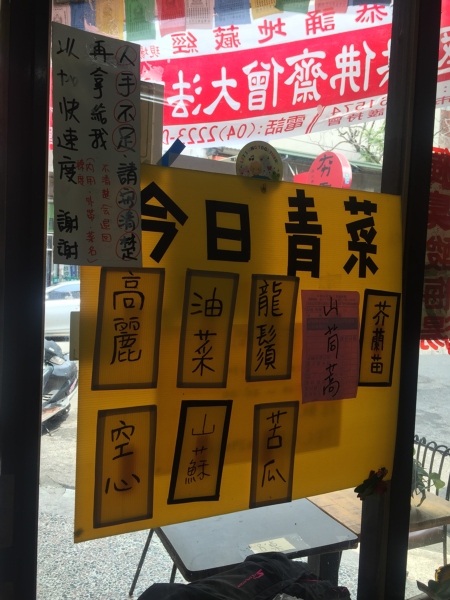 恭誦地藏經
供佛齋僧大法
電話:(04)2223-
護持會
人手不足,請寫清楚
再拿給我
以加快速度 謝謝
今日青菜
高麗
油菜
龍鬚
山茼蒿
芥蘭苗
空心
山蘇
苦瓜